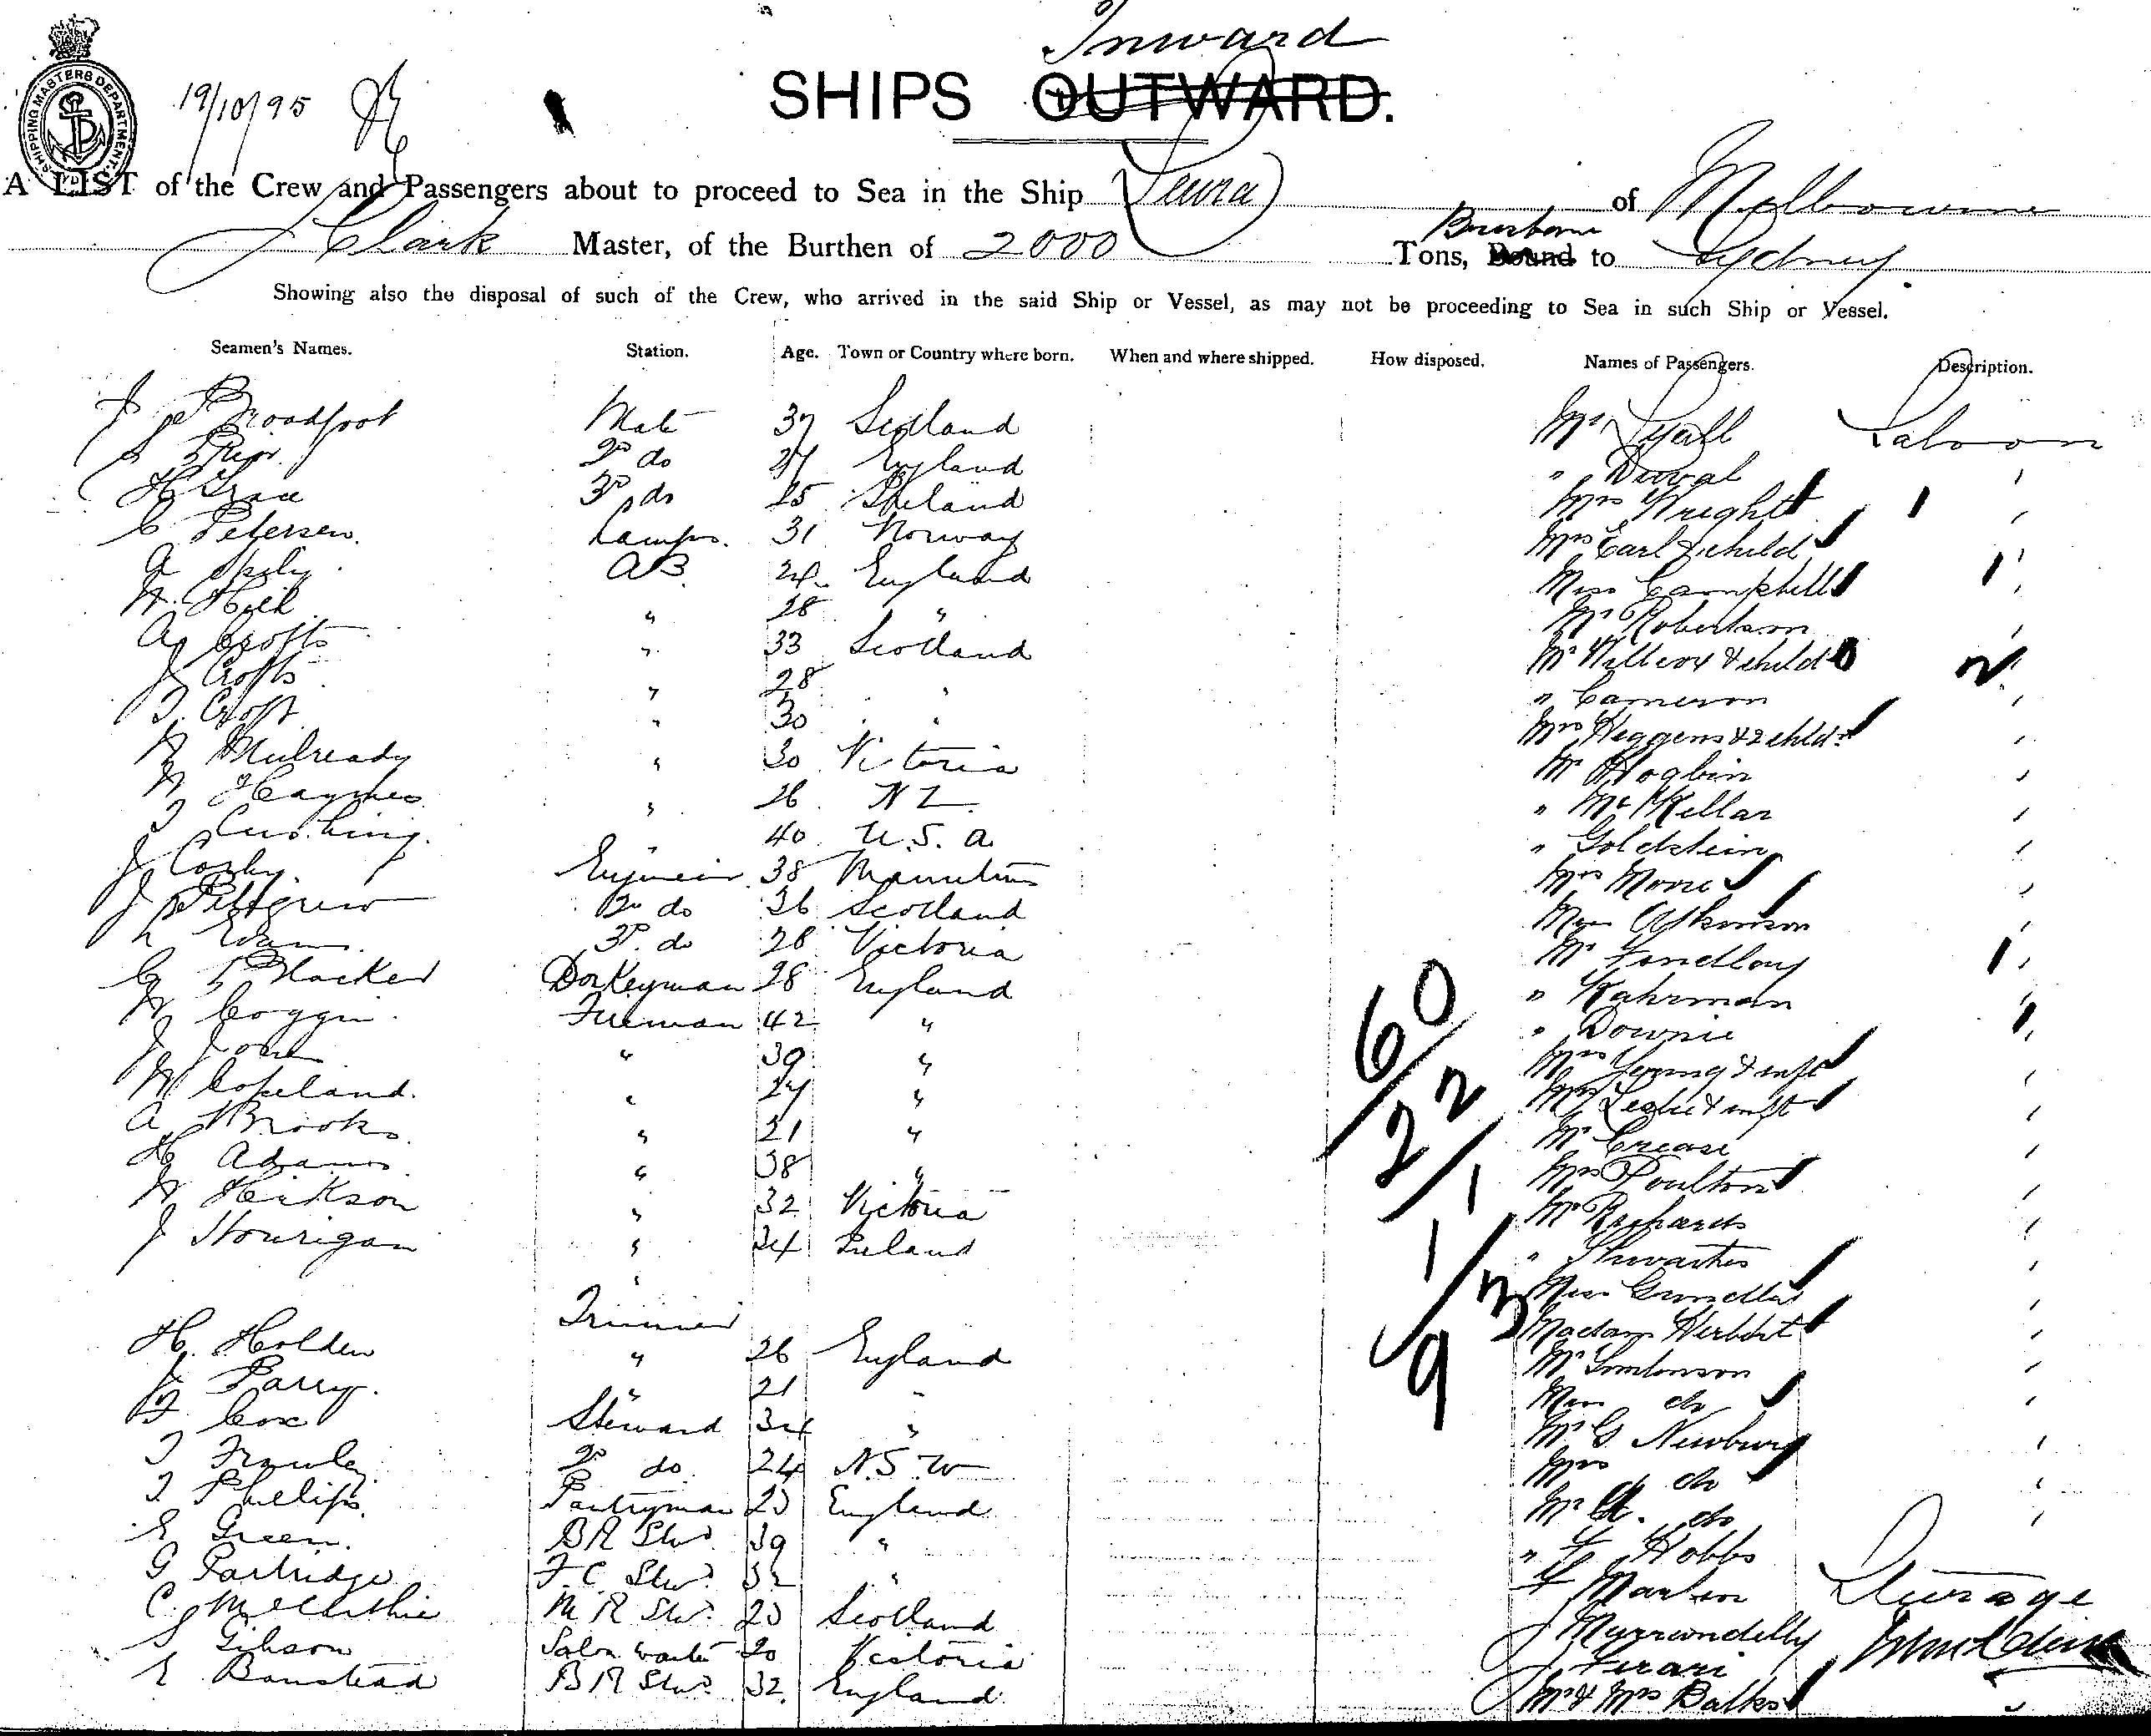 Inward
SHIPS OUTWARD.
SHIPPING MASTERS DEPARTMENT
19/10/95
A LIST of the Crew and Passengers about to proceed to Sea in the Ship Leura of Melbourne
J Clark Master, of the Burthen of 2000 Tons, Bound to Sydney
Brisbane
Showing also the disposal of such of the Crew, who arrived in the said Ship or Vessel, as may not be proceeding to Sea in such Ship or Vessel.
Seamen's Names. Station. Age. Town or Country where born. When and where shipped. How disposed. Names of Passengers. Description.
Broadfoot Mate 37 Scotland Mr Lyall Saloon
2d do 27 England " Duval "
3d do 25 Mrs Wright "
C Petersen. Lamps. 31 Norway Mrs Earl & child
A AB 24 England Miss Campbell "
W. Hill " 28 " Mr Robertson "
A Crofts " 33 Scotland Mr Willcox & child "
J Crofts " 28 " " Cameron "
T. Croft " 30 " Mrs Heggens & 2 chldn "
W Mulready " 30 Victoria Mr Hogbin "
W Haymes " 26 N Z " McKellar "
T Cushing. " 40 U.S.A. " Goldstein "
J Cosby Engineer 38 Mauritius Mrs Moore "
J Pettigrew 2d do 36 Scotland Atkinson "
3d. do 28 Victoria Mr Findlay "
G Donkeyman 28 England " Kahrman "
W Coggin. Fireman 42 " " Downie "
J " 39 " Mrs Young & inft "
W Copeland. " 27 " Mrs Leslie & inft "
A Brooks " 21 " Mr Crease "
H Adams " 38 " Mrs Poulton "
W Hickson " 32 Victoria Mr Richards "
J Hourigan " 34 Ireland "
" Miss "
Trimmer Madam Herbert "
H. Holden " 26 England Mr Tomlinson "
J Parry. " 21 " Miss do "
F. Cox Steward 34 " Mr G Newbury "
T Frawley 2d do. 24 N.S.W Mrs do "
T Phillips Pantryman 23 England Mr do "
E Green. BR Stwd 39 " " F Hobbs
G Partridge F.C. Stwd 32 " Steerage
C. McCarthie M R Stwd. 23 Scotland J
S Gibson Salon waiter 20 Victoria J Ferari
E Banstead BR Stwd. 32 England Mr & Mrs Balks "
60
22
1 1
9 3